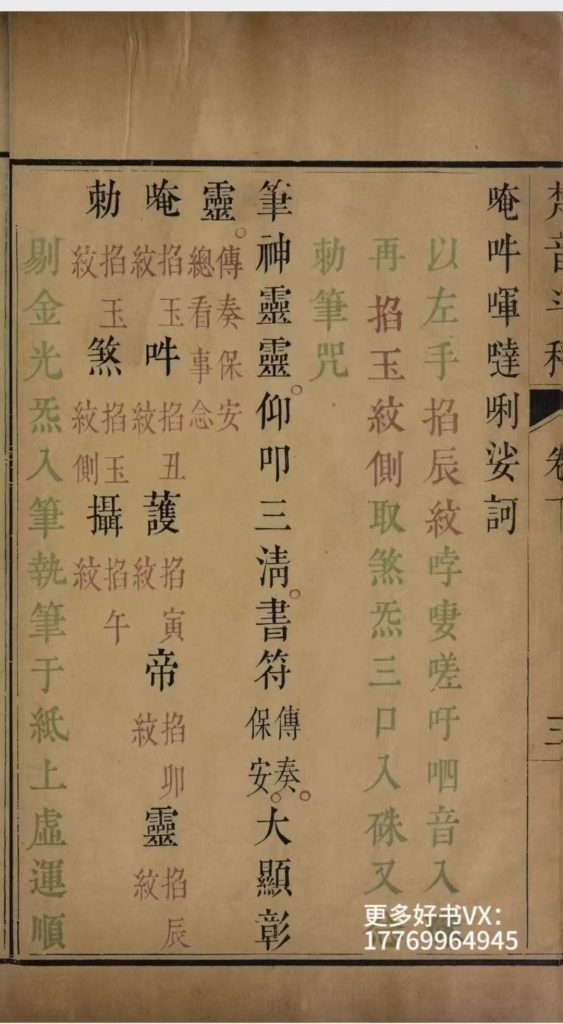 梵音斗科 卷下 三
唵吽喗噠唎娑訶
以左手掐辰紋哱嗟吁呬音入
再掐玉紋側取煞炁三口入硃又
勅筆咒
筆神靈靈。仰叩三清。書符傳奏。保安。大顯彰
靈。傳奏保安總看事念
唵掐玉紋吽掐丑紋護掐寅紋帝掐卯紋靈掐辰紋
勅掐玉紋煞掐玉紋側攝掐午紋
剔金光炁入筆執筆于紙上虛運順
更多好书VX：
17769964945